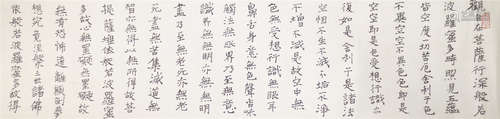 觀自在菩薩行深般若
波羅蜜多時照見五蘊
皆空度一切苦厄舍利子色
不異空空不異色色即是
空空即是色受想行識亦
復如是舍利子是諸法
空相不生不滅不垢不淨
不增不減是故空中無
色無受想行識無眼耳
鼻舌身意無色聲香味
觸法無眼界乃至無意
識界無無明亦無無明
盡乃至無老死亦無老
死盡無苦集滅道無
智亦無得以無所得故菩
提薩埵依般若波羅蜜
多故心無罣礙無罣礙故
無有恐怖遠離顛倒夢
想究竟涅槃三世諸佛
依般若波羅蜜多故得